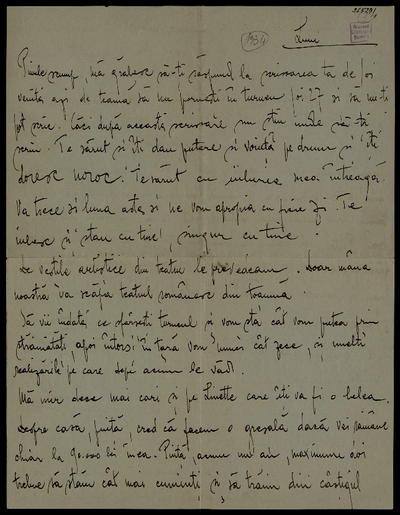 26529/1
1934
Luni
Puiule scump, mă grăbesc să-ți răspund la scrisoarea ta de joi
venită azi de teamă să nu pornești în turneu joi 27 și să nu-ți
pot scrie. Căci după această scrisoare nu știu unde să-ți
scriu. Te sărut și îți dau putere și voință pe drum și îți
doresc noroc. Te sărut cu iubirea mea întreagă.
Va trece și luna asta și ne vom apropia cu fiece zi. Te
iubesc și stau cu tine, singur cu tine.
Le veștile artistice din teatru le prevedeam. Doar mâna
noastră va scăpa teatrul românesc din toamnă.
Să vii îndată ce sfârșești turneul și vom sta cât vom putea prin
străinătate apoi întorși în țară vom munci cât zece, și multe
realizări pe care deja acum le văd.
Mă mir deci mai cari și pe Linette care îți va fi o belea.
Despre casă, puică, cred că facem o greșală dacă vei rămâne
chiar la 90.000 lei în ea. Puică, acum un an, maximum doi
trebue să stăm cât mai cuminți și să trăim din câștigul